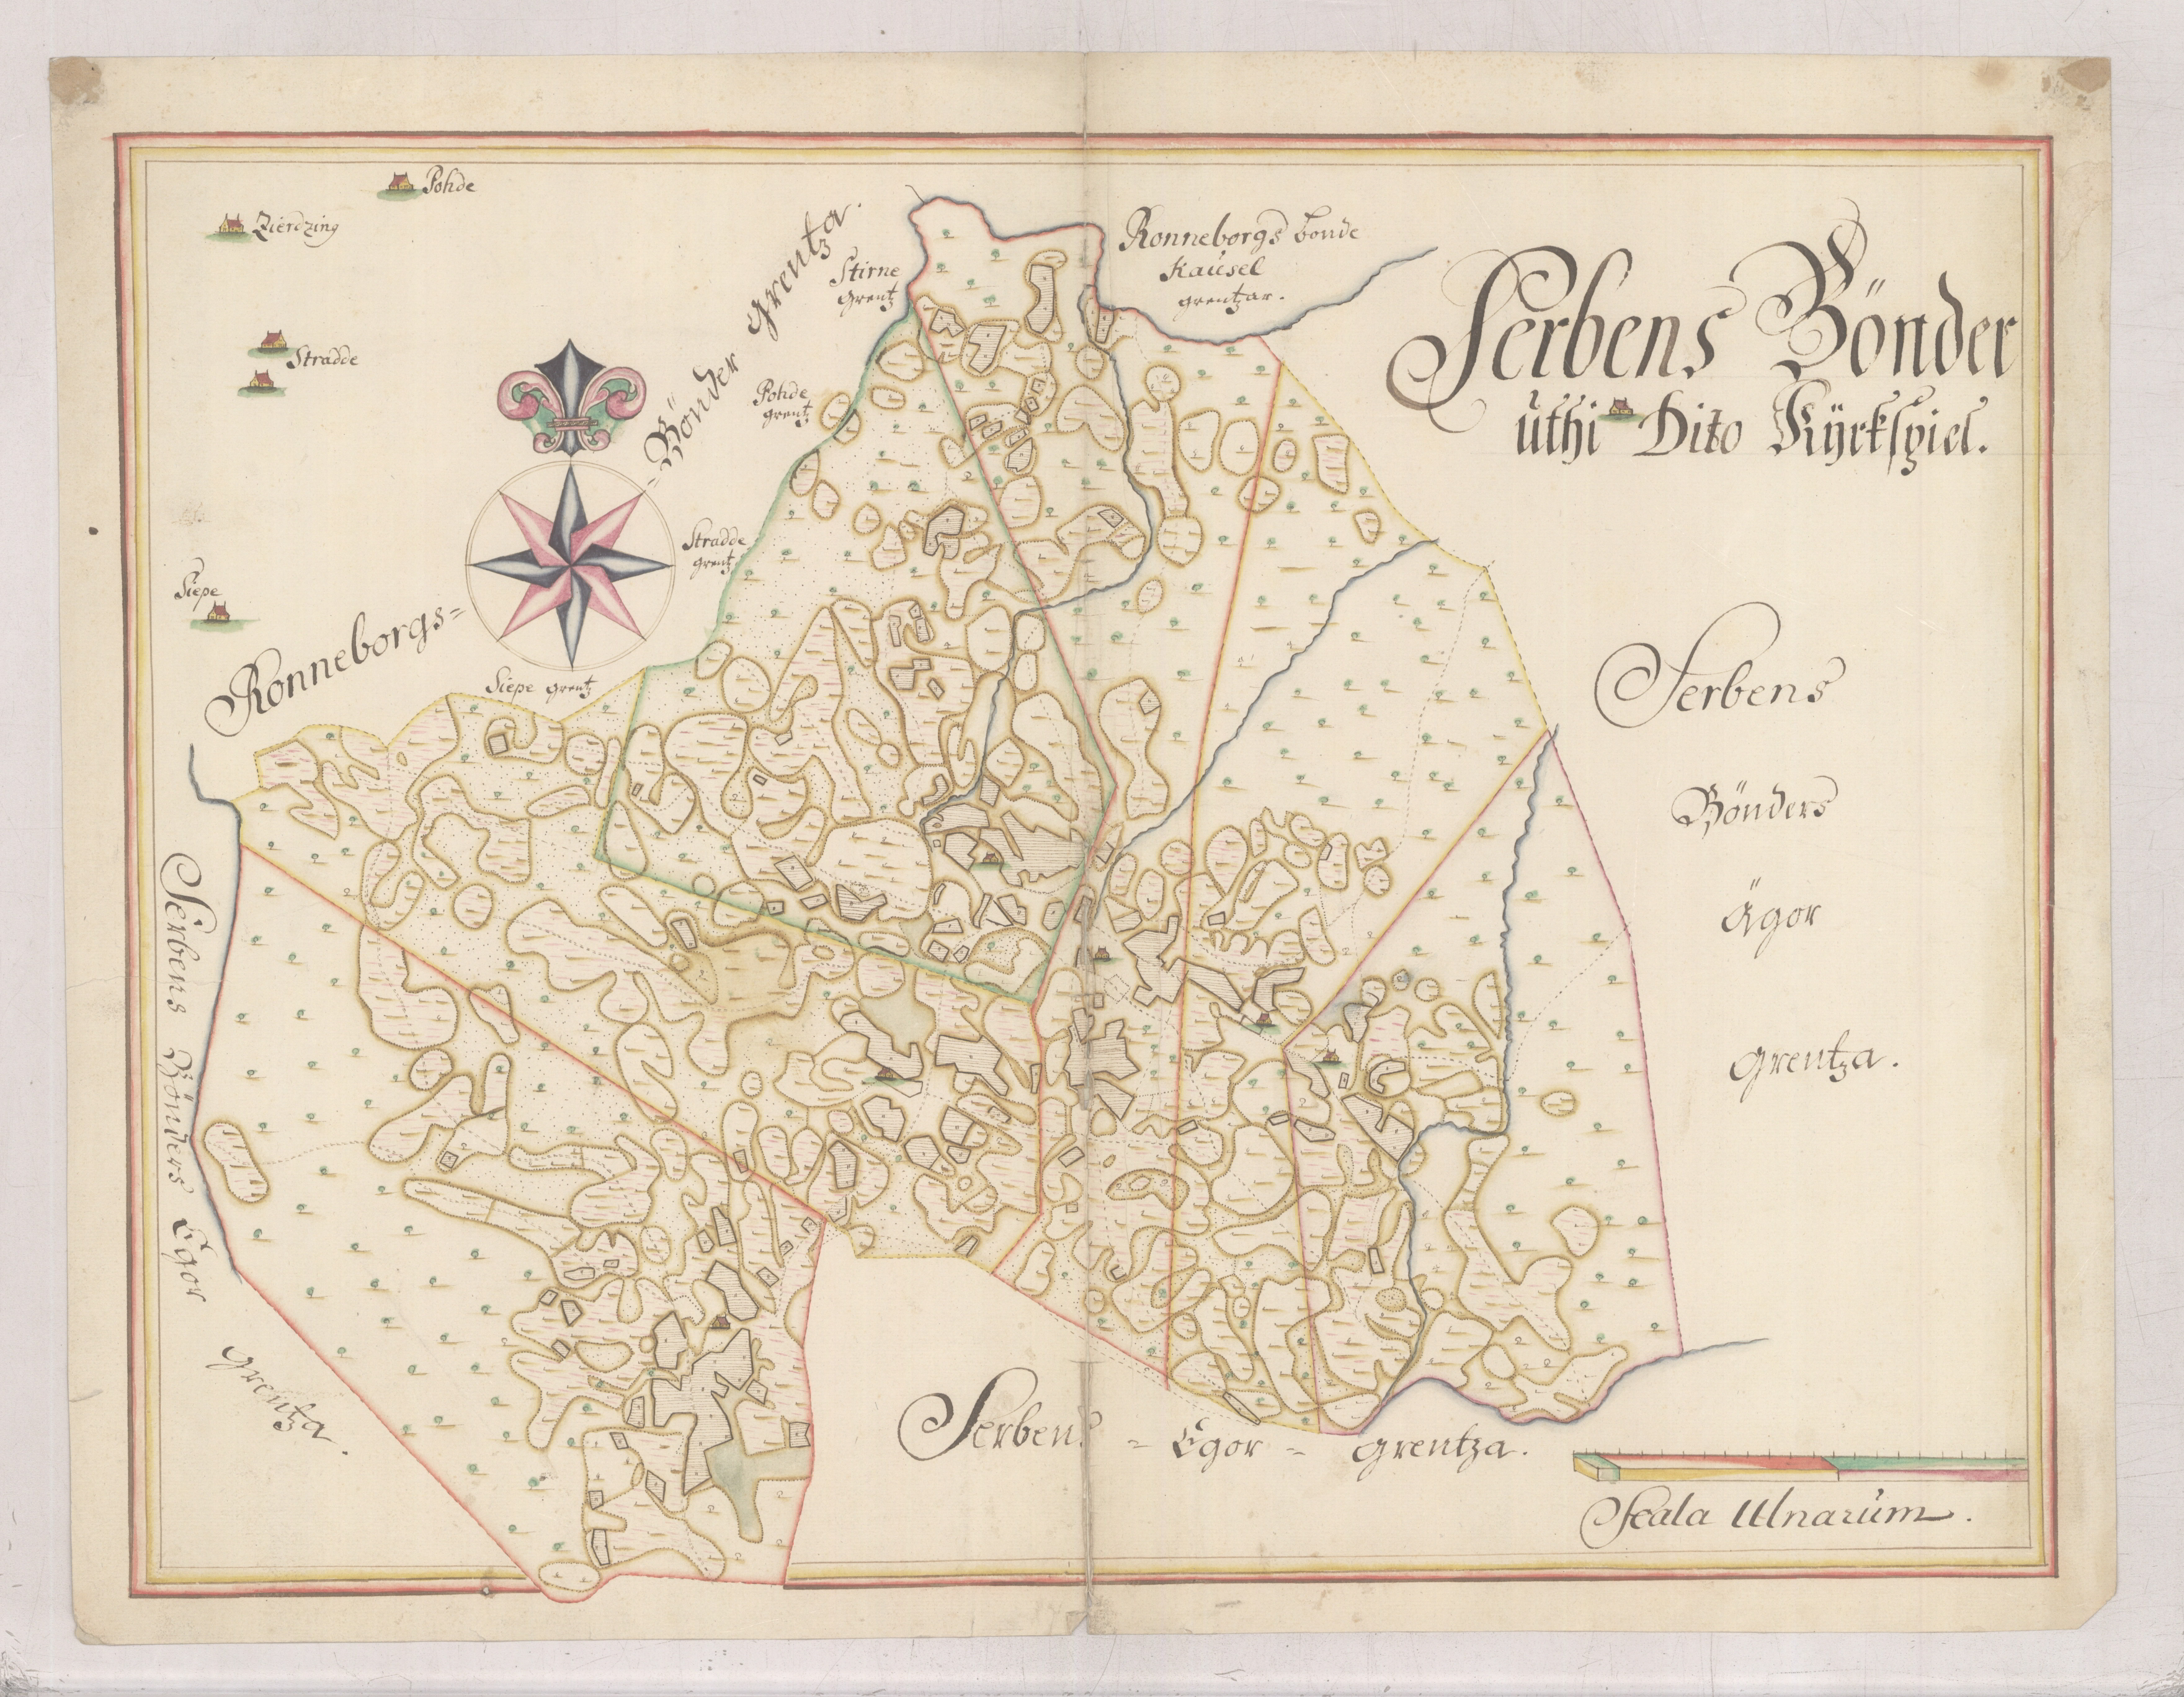 Serbens Bönder
uthi Dito Kÿrkspiel.
Pohde
Zierdzing
Stradde
Siepe
Ronneborgs=
=Bönder grentza.
Stirne
grentz
Pohde
grentz
Stradde
grentz
Siepe grentz
Ronneborgs bonde
Kaúsel
grentzar.
Serbens
Bönders
Ägor
grentza.
Serbens Bönders Egor
grentza.
Serbens = Egor = grentza.
Scala Ulnarúm.